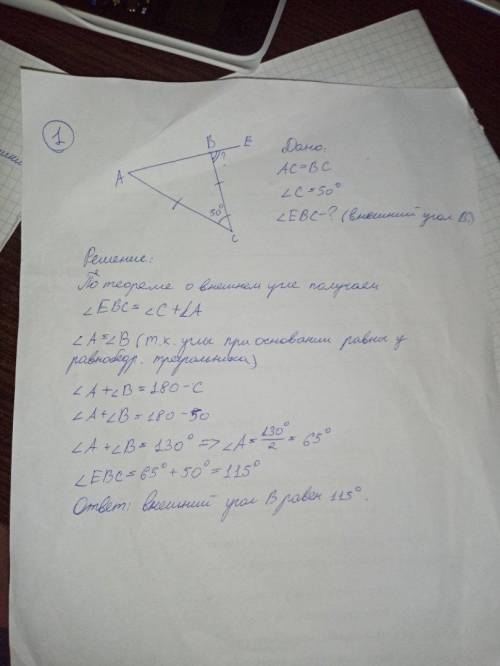 1
B E
?
A
50°
C
Дано:
AC=BC
∠C=50°
∠EBC-? (внешний угол B.)
Решение:
По теореме о внешнем угле получаем
∠EBC=∠C+∠A
∠A=∠B (т.к. углы при основании равны у
равнобедр. треугольника)
∠A+∠B=180-C
∠A+∠B=180-50
∠A+∠B=130° => ∠A=130°/2=65°
∠EBC=65°+50°=115°
Ответ: внешний угол B равен 115°.